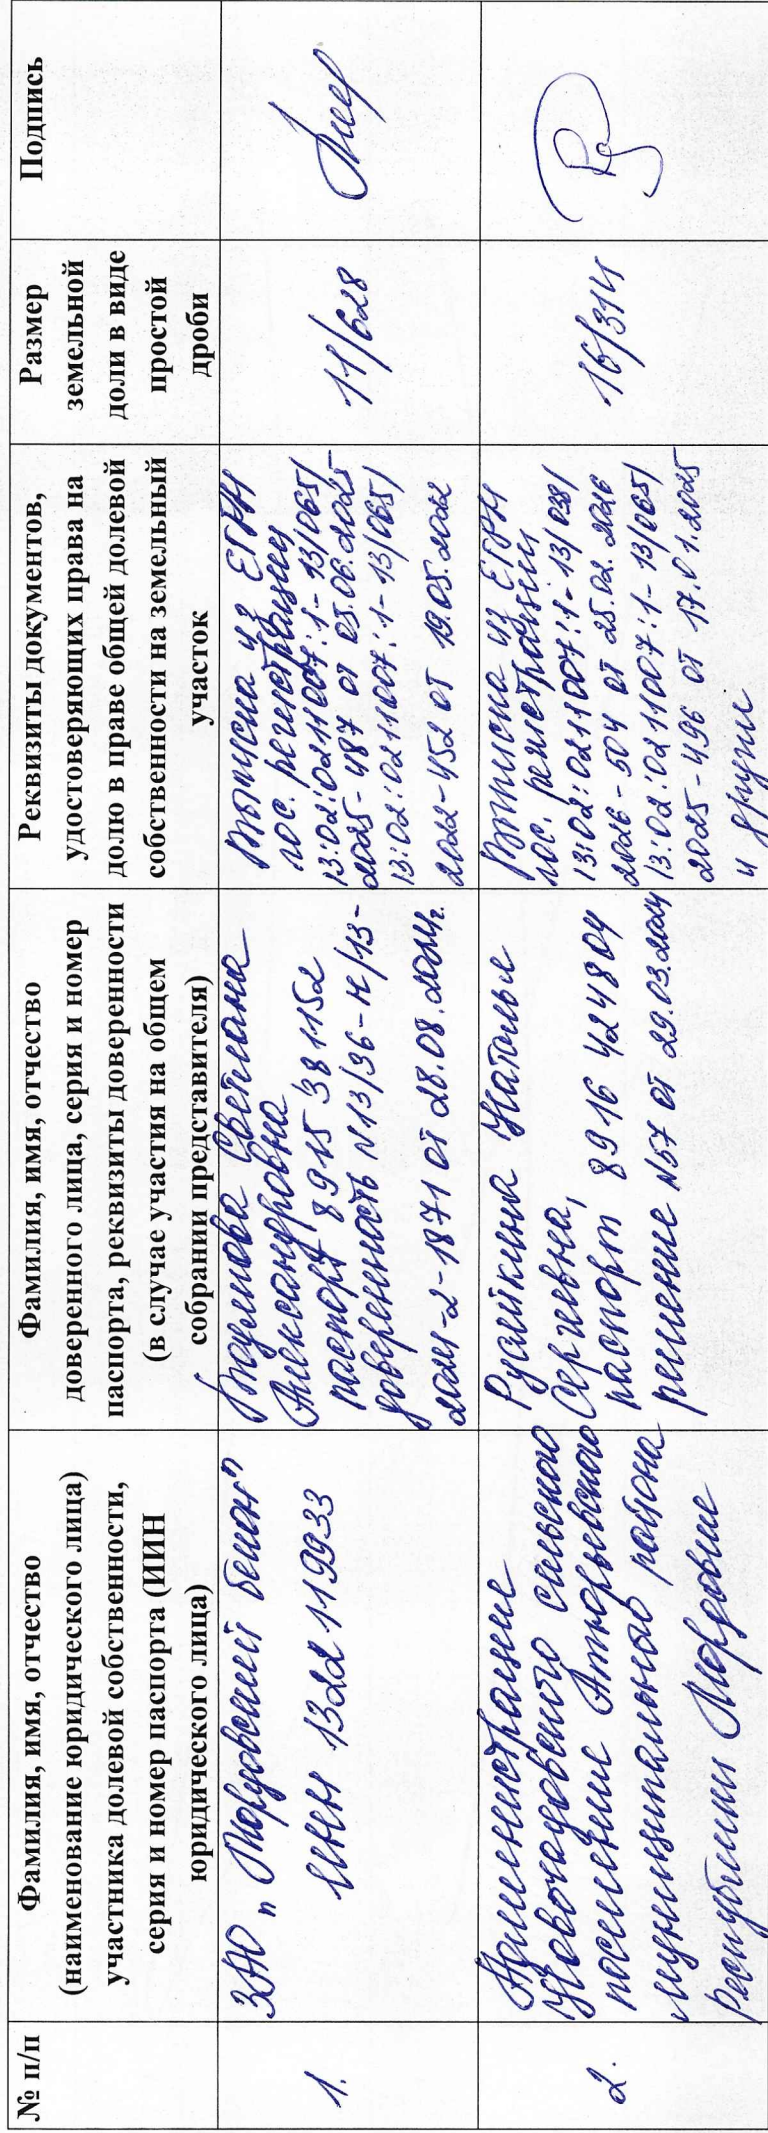 № п/п
Фамилия, имя, отчество
(наименование юридического лица)
участника долевой собственности,
серия и номер паспорта (ИИН
юридического лица)
Фамилия, имя, отчество
доверенного лица, серия и номер
паспорта, реквизиты доверенности
(в случае участия на общем
собрании представителя)
Реквизиты документов,
удостоверяющих права на
долю в праве общей долевой
собственности на земельный
участок
Размер
земельной
доли в виде
простой
дроби
Подпись
1.
ЗАО "Мордовский бекон"
ИНН 1322119933
Светлана
Александровна
паспорт 8915 381152
доверенность №13/36-н/13-
2024-2-1871 от 28.08.2024г.
Выписка из ЕГРН
гос. регистрации
13:02:0211007:1-13/065/
2025-487 от 05.06.2025
13:02:0211007:1-13/065/
2022-452 от 19.05.2022
11/628
2.
Администрация
Новочадовского сельского
поселения Атюрьевского
муниципального района
Республики Мордовия
Русяйкина Наталья
Сергеевна,
паспорт 8916 424804
решение №57 от 29.03.2024
Выписка из ЕГРН
гос. регистрации
13:02:0211007:1-13/038/
2026-504 от 25.02.2026
13:02:0211007:1-13/065/
2025-496 от 17.01.2025
и другие
16/314